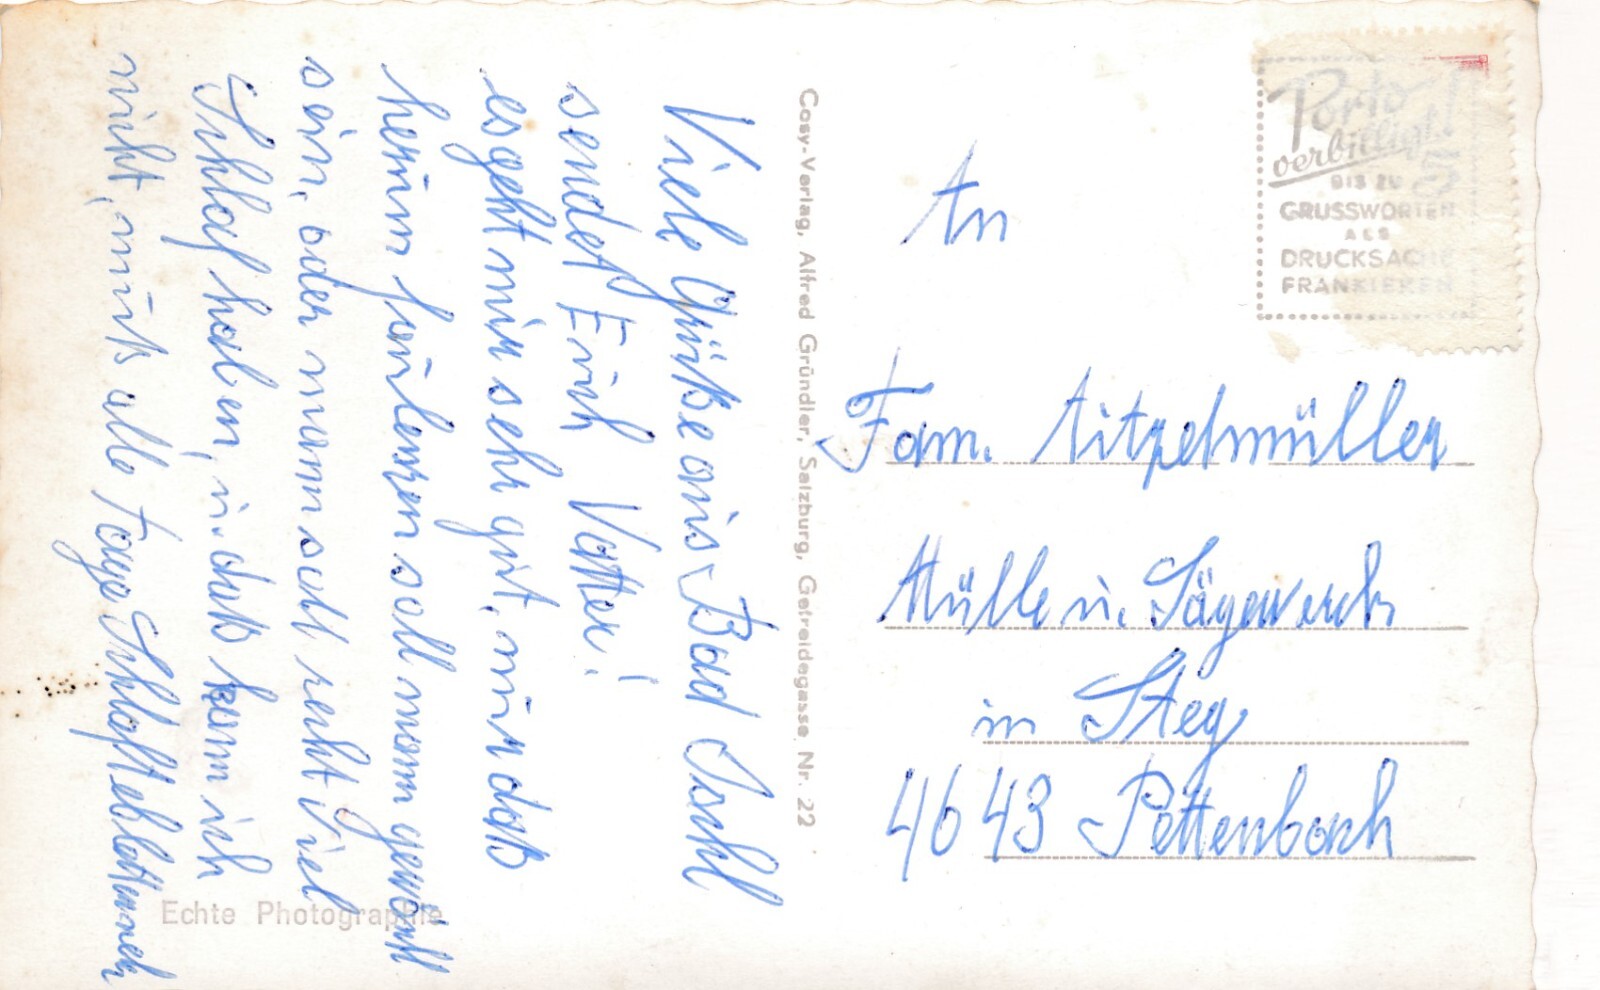 Viele Grüße aus Bad Ischl
sendet Euch Vatter!
es geht mir sehr gut, nur daß
herum faulenzen soll mann gewöhlt
sein, oder mann soll recht viel
Schlaf haben, u. daß kann ich
nicht, muß alle Tage Schlaftebletten neh
Cosy-Verlag, Alfred Gründler, Salzburg, Getreidegasse Nr. 22
Echte Photographie
Porto
verbilligt!
BIS ZU 5
GRUSSWORTEN
ALS
DRUCKSACHE
FRANKIEREN
An
Fam. Aitzetmüller
Mülle u. Sägewerch
in Steg
4643 Pettenbach